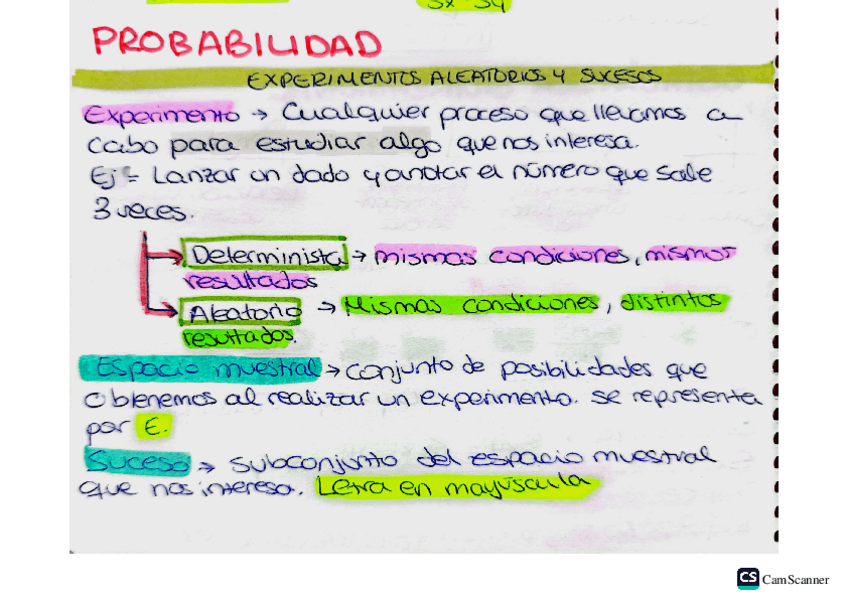 PROBABILIDAD
EXPERIMENTOS ALEATORIOS Y SUCESOS
Experimento → Cualquier proceso que llevamos a
cabo para estudiar algo que nos interesa.
Ej = Lanzar un dado y anotar el número que sale
3 veces.
Determinista → mismas condiciones, mismos
resultados
Aleatorio → Mismas condiciones, distintos
resultados.
Espacio muestral → conjunto de posibilidades que
obtenemos al realizar un experimento. Se representa
por E.
Suceso → subconjunto del espacio muestral
que nos interesa. Letra en mayúscula
CS CamScanner